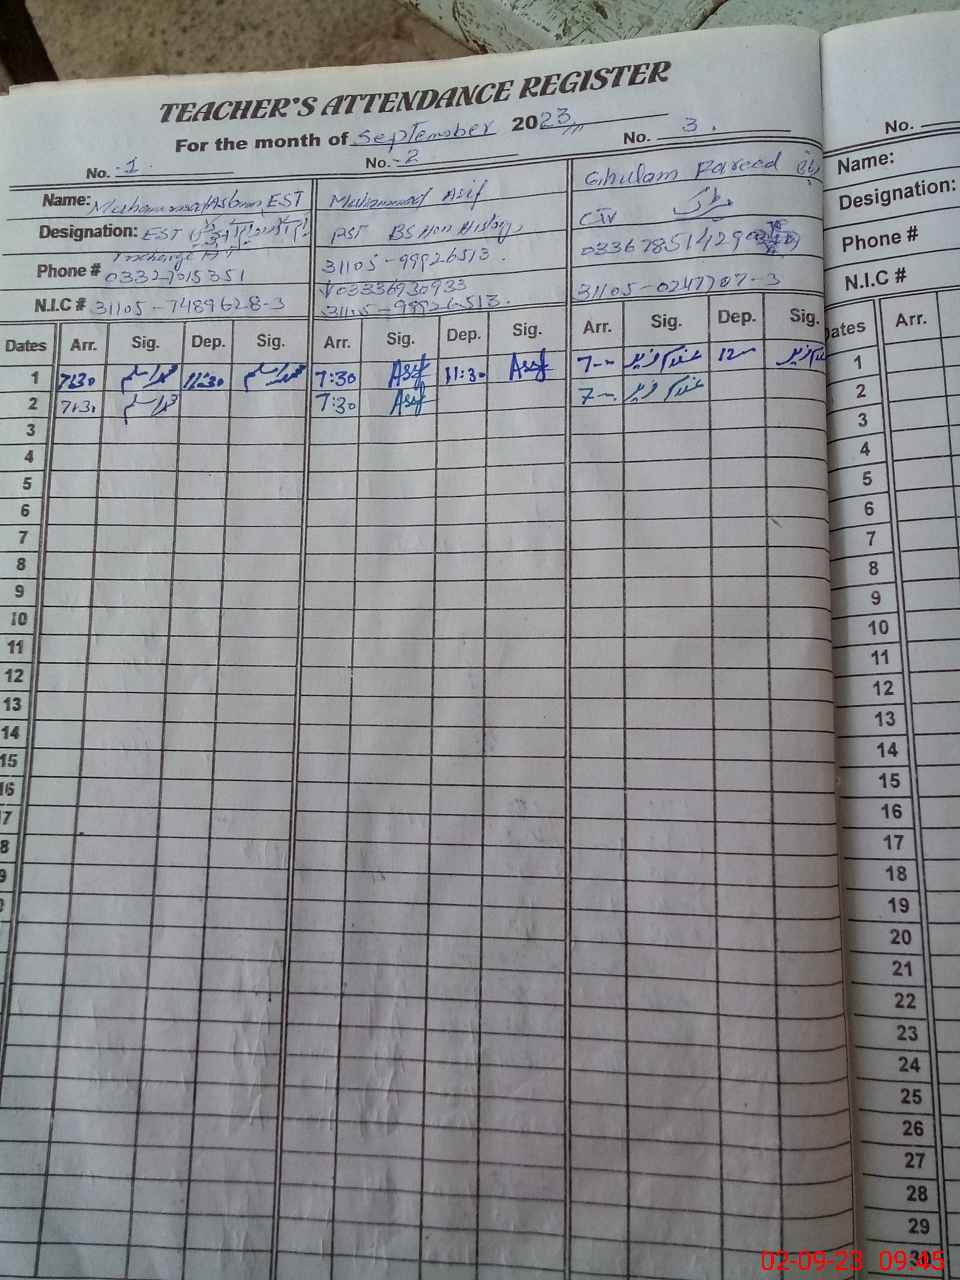 TEACHER'S ATTENDANCE REGISTER
For the month of September 2023
No. 1 No. 2 No. 3
Name: Muhammad Aslam EST Muhammad Asif Ghulam Fareed
Designation: EST PST BS Hon History CIV
Incharge
Phone # 31105-99926513
03336930933
N.I.C # 31105-7489628-3 31105-99926513. 31105-0247707-3
Dates Arr. Sig. Dep. Sig. Arr. Sig. Dep. Sig. Arr. Sig. Dep. Sig.
1 7:30 محمد اسلم 11:30 محمد اسلم 7:30 Asif 11:30 Asif 7 غلام فرید 12 غلام فرید
2 7:30 محمد اسلم 7:30 Asif 7 غلام فرید
3
4
5
6
7
8
9
10
11
12
13
14
15
16
No.
Name:
Designation:
Phone #
N.I.C #
Dates Arr.
1
2
3
4
5
6
7
8
9
10
11
12
13
14
15
16
17
18
19
20
21
22
23
24
25
26
27
28
29
30
02-09-23 09:45